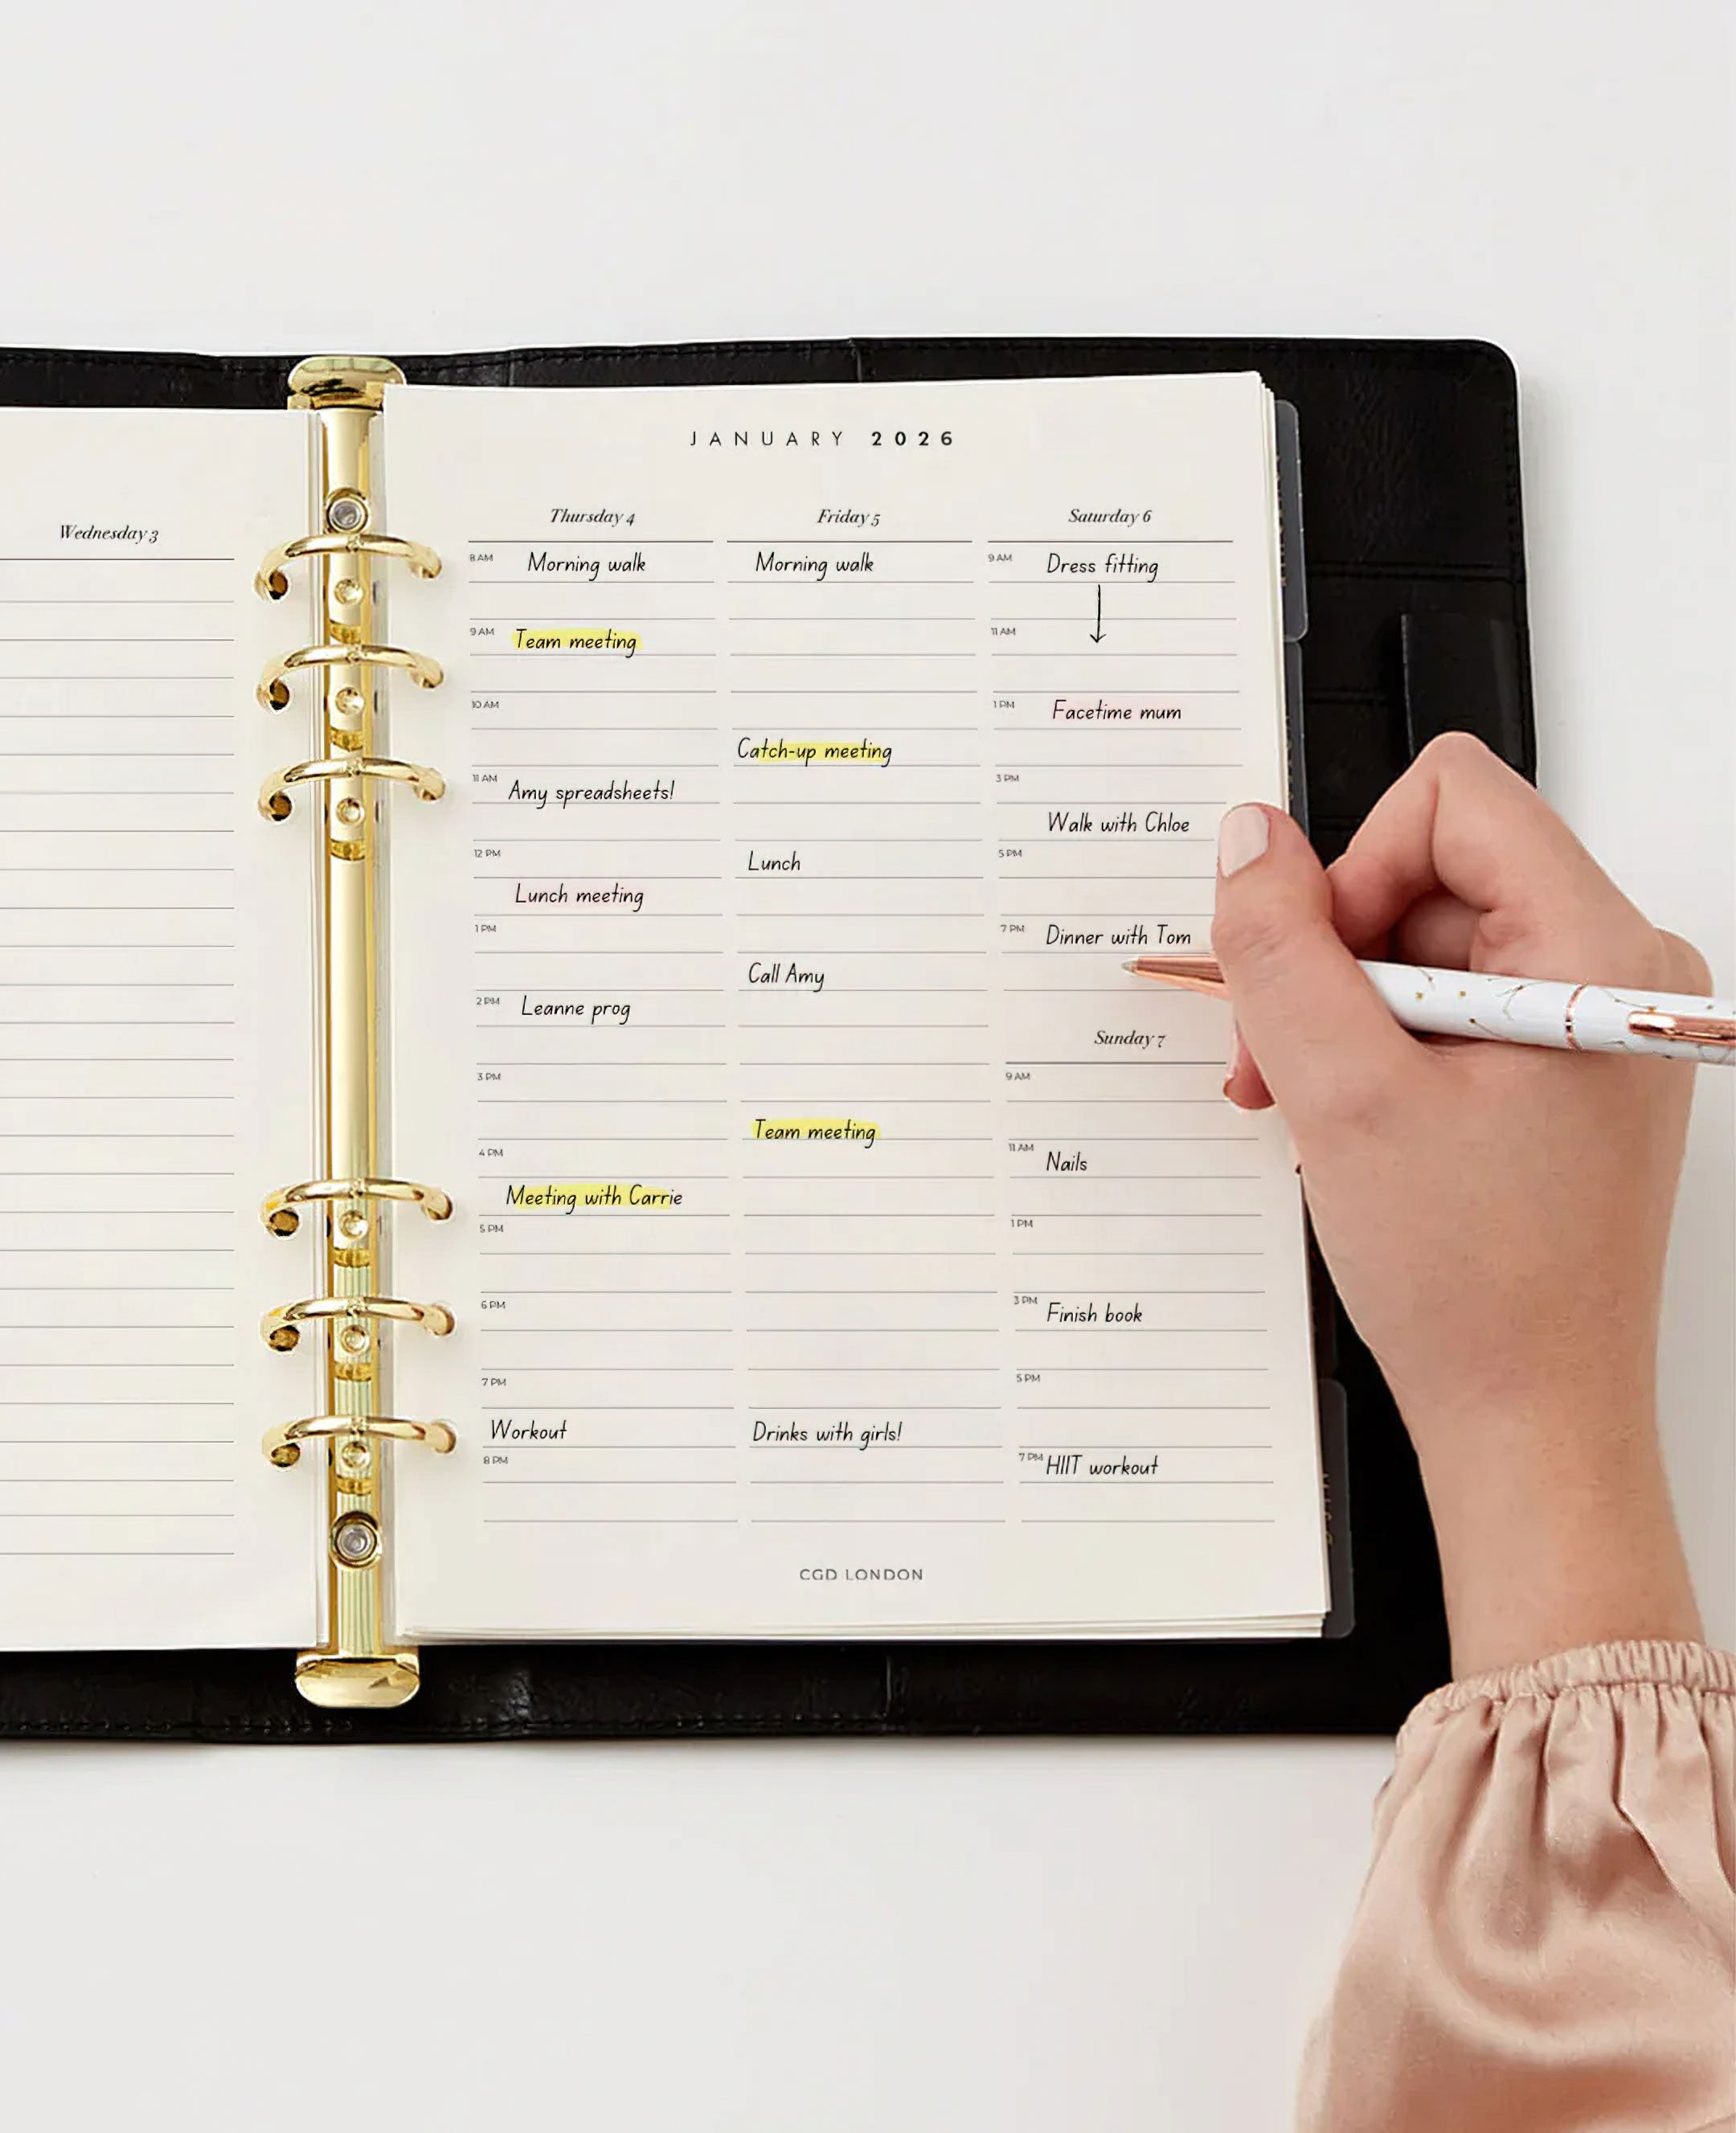 Wednesday 3
JANUARY 2026
Thursday 4
8 AM Morning walk
9 AM Team meeting
10 AM
11 AM Amy spreadsheets!
12 PM
Lunch meeting
1 PM
2 PM Leanne prog
3 PM
4 PM
Meeting with Carrie
5 PM
6 PM
7 PM
Workout
8 PM
Friday 5
Morning walk
Catch-up meeting
Lunch
Call Amy
Team meeting
Drinks with girls!
Saturday 6
9 AM Dress fitting
11 AM
1 PM Facetime mum
3 PM
Walk with Chloe
5 PM
7 PM Dinner with Tom
Sunday 7
9 AM
11 AM Nails
1 PM
3 PM Finish book
5 PM
7 PM HIIT workout
CGD LONDON